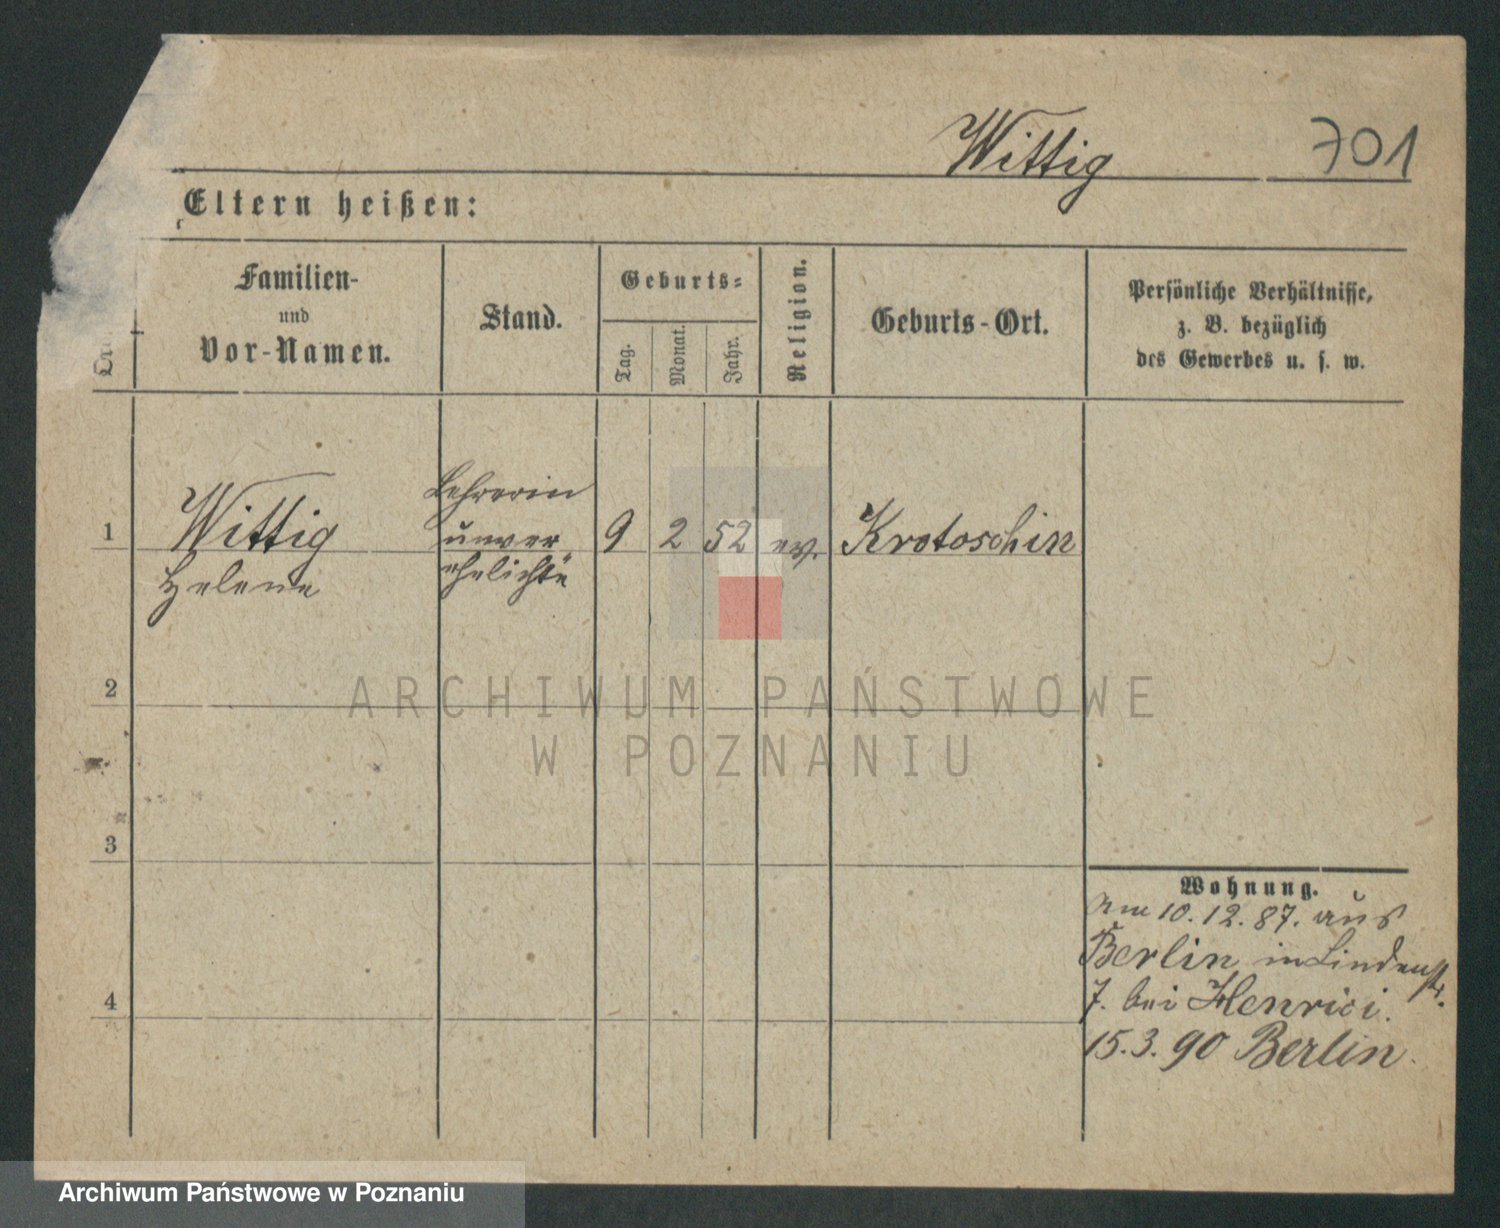 Wittig 701
Eltern heißen:
Familien-
und
Vor-Namen.
Stand.
Geburts-
Tag.
Monat.
Jahr.
Religion.
Geburts-Ort.
Persönliche Verhältnisse,
z. B. bezüglich
des Gewerbes u. s. w.
1
Wittig
Helene
Lehrerin
unver
ehelichte
9 2 52 ev. Krotoschin
2
ARCHIWUM PAŃSTWOWE
W POZNANIU
3
4
Wohnung.
am 10.12.87. aus
Berlin in Lindenstr.
7. bei Henrici.
15.3.90 Berlin.
Archiwum Państwowe w Poznaniu